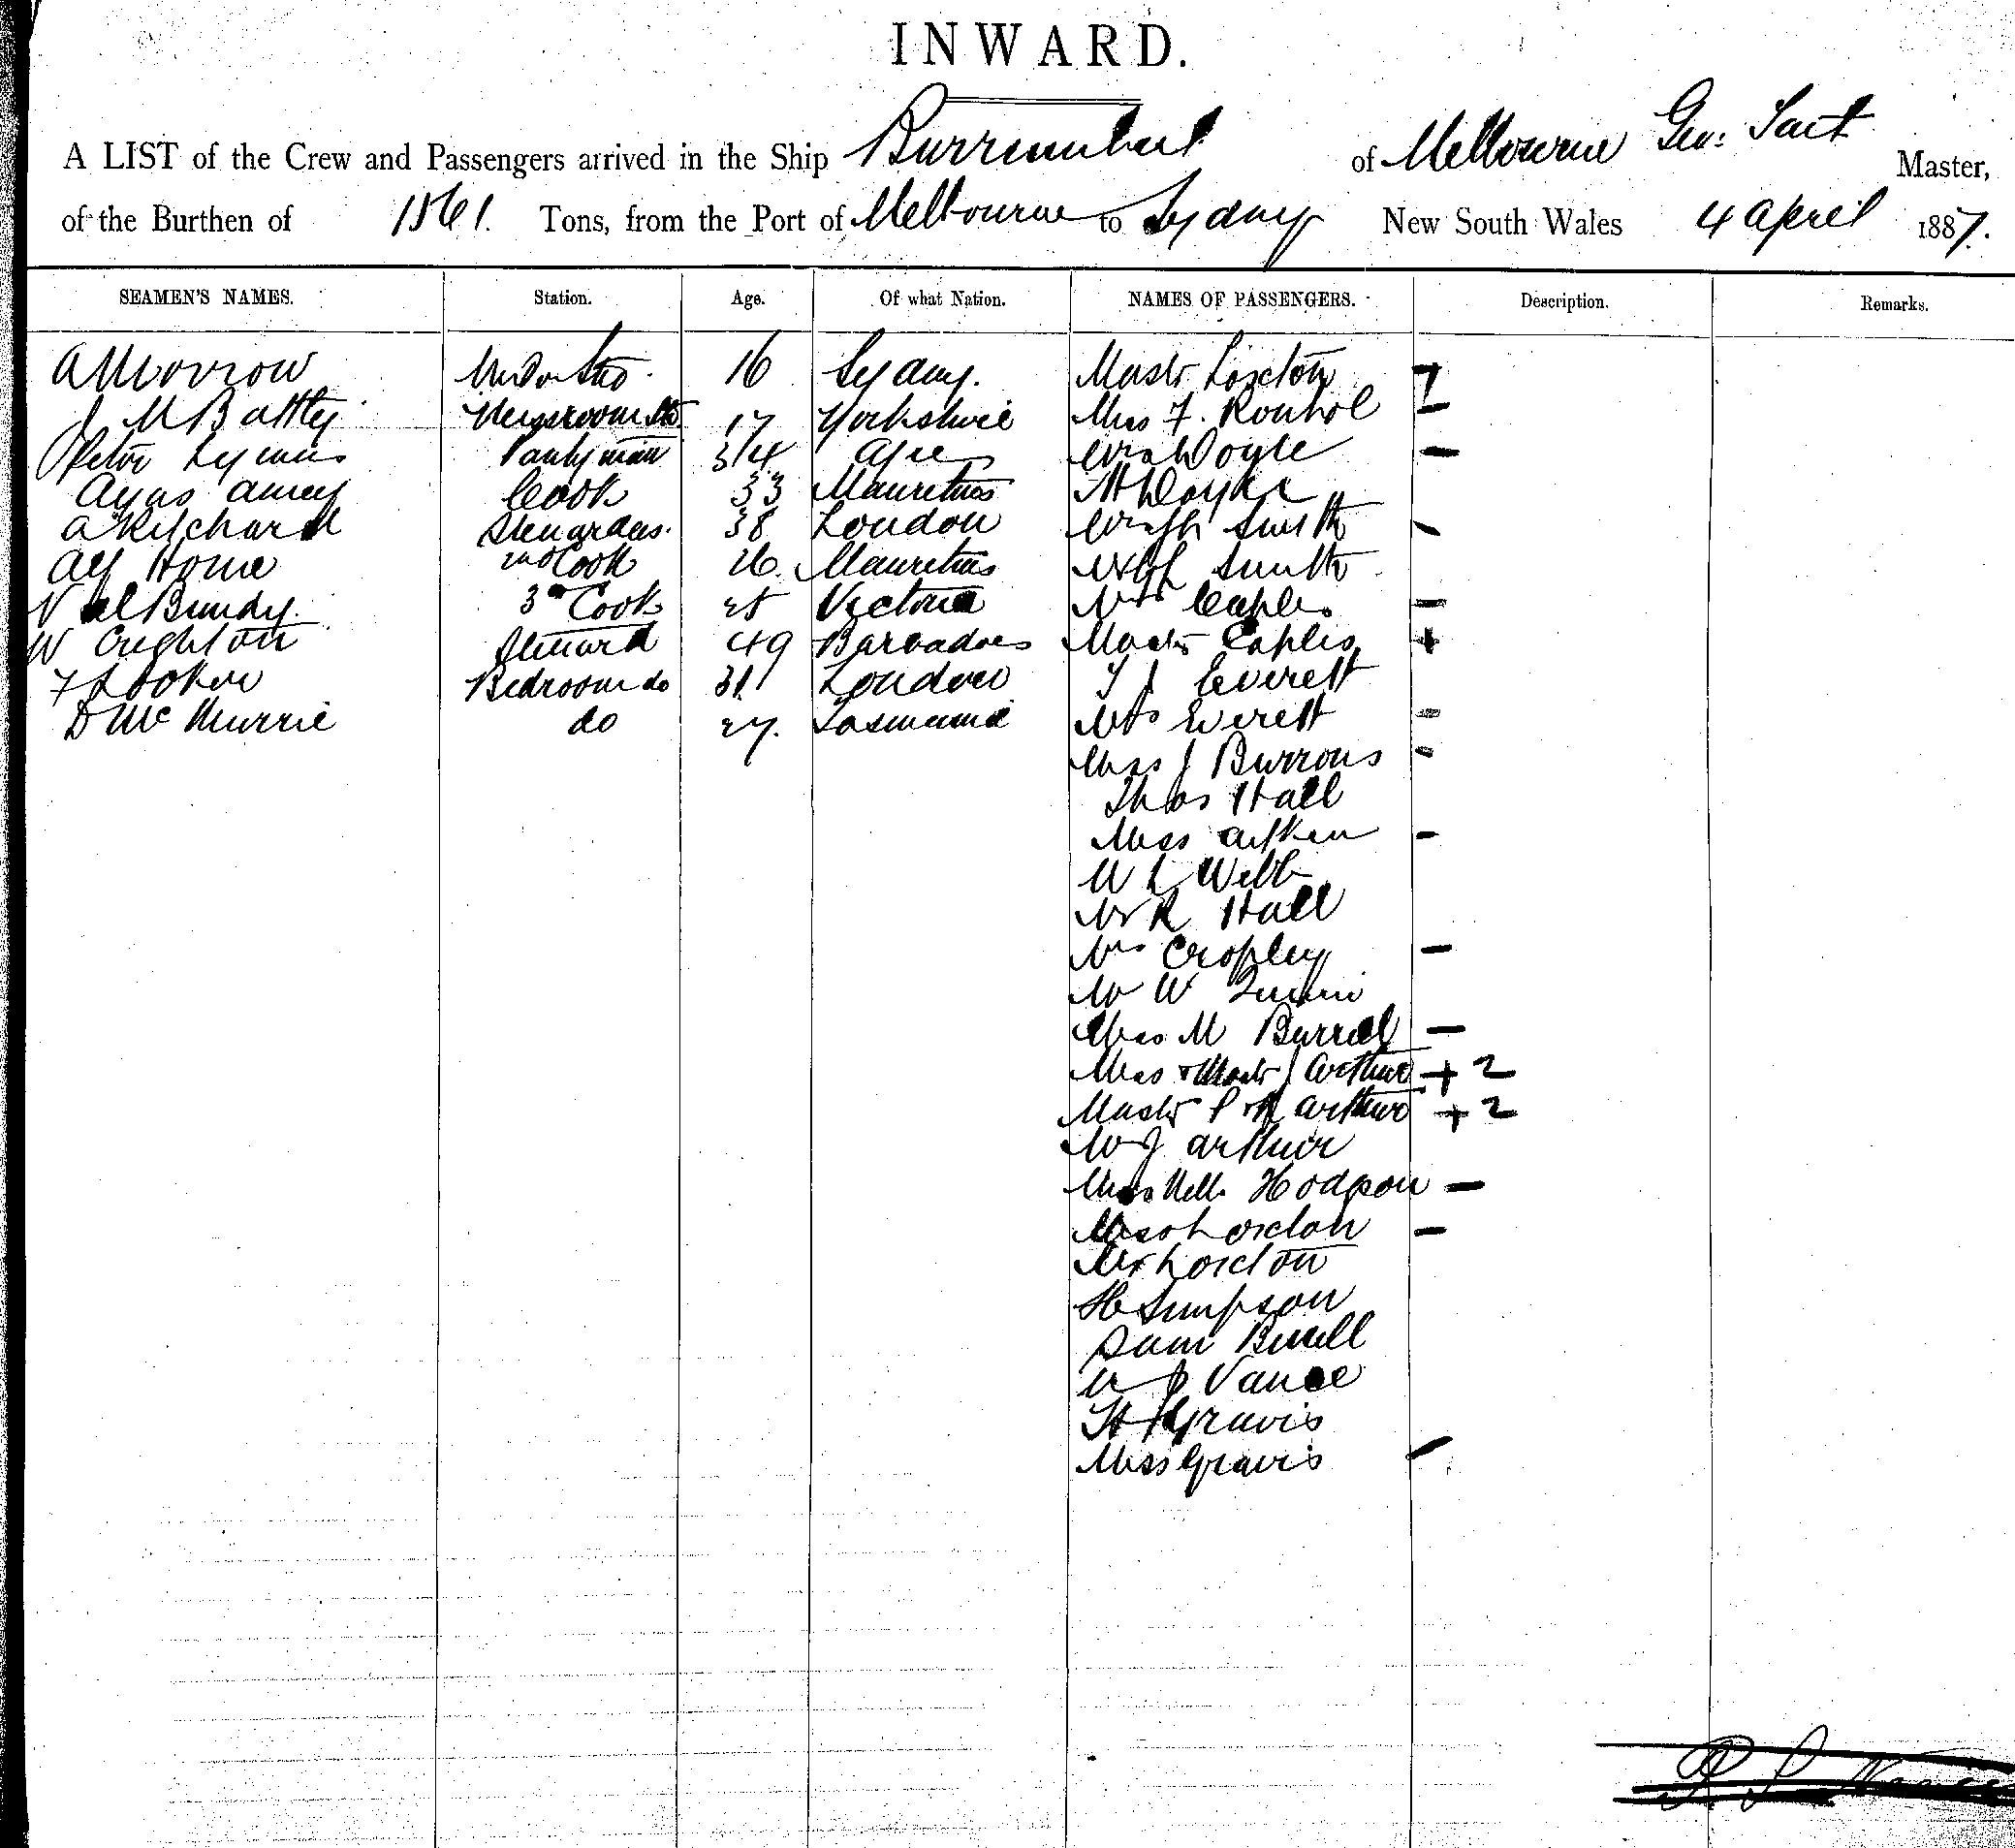 INWARD.
A LIST of the Crew and Passengers arrived in the Ship Burrumbeet of Melbourne Geo: Master,
of the Burthen of Tons, from the Port of Melbourne to Sydney New South Wales 4 April 1887.
SEAMEN'S NAMES. Station. Age. Of what Nation. NAMES OF PASSENGERS. Description. Remarks.
A Morrow 16 Sydney. Mastr Loxton
J M Battty Messroom 17 Yorkshire Miss F.
Peter Pantryman 34 Doyle
Cook 33 Mauritius Doyle
A Stewardess. 38 London Smith
Alf Home 2nd Cook 26. Mauritius Smith
Bundy 3rd Cook 25 Victoria Mrs Caples
W Creghton Steward 49 Barbadoes Mastr Caples +
F Looker Bedroom do 31 London T J Everett
D McMurrie do 27. Tasmania Mrs Everett
Miss J Burrows
Thos Hall
Miss Aitken
Webb
Mr R Hall
Mrs Cropley
Mr W
Miss M Burrell
Miss & Mastr J Arthur + 2
Mastr P & A Arthur + 2
Mr J Arthur
Miss Nell. Hodgson
Miss Loxton
Mr Loxton
H Simpson
Sam
Vance
Gravis
Miss Gravis